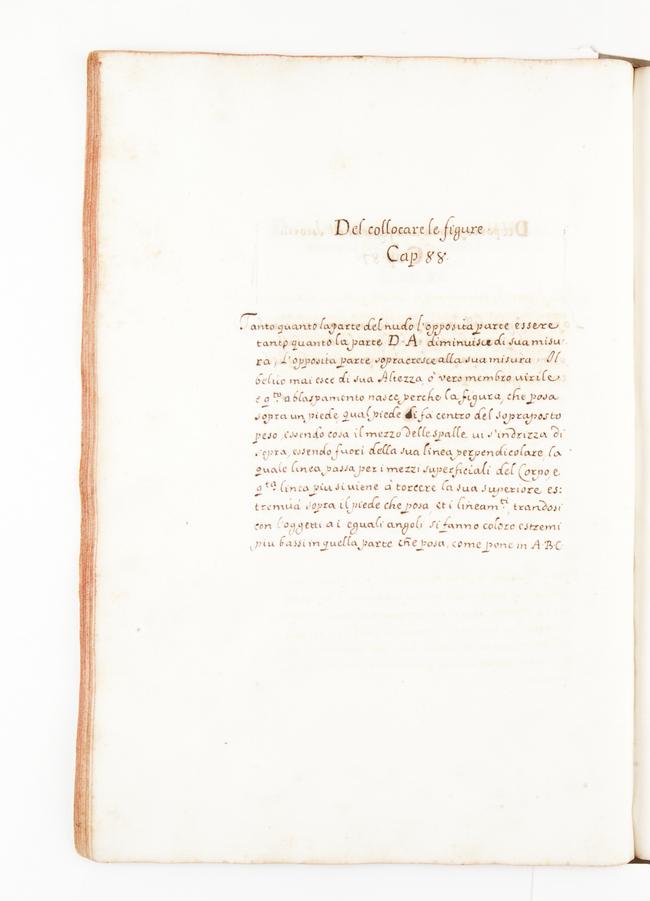 Del collocare le figure
Cap 88.
Tanto quanto la parte del nudo l'opposita parte essere
tanto quanto la parte D·A· diminuisce di sua misu
ra, L'opposita parte sopracresce alla sua misura. Il
belico mai esce di sua Altezza, ò vero membro virile
e q.to ablaspamento nasce perche la figura, che posa
sopra un piede, qual piede si fa centro del sopraposto
peso, essendo cosa il mezzo delle spalle ui s'indrizza di
sopra, essendo fuori della sua linea perpendicolare la
quale linea passa per i mezzi superficiali del Corpo, e
q.ta linea piu si viene à torcere la sua superiore es:
tremità sopra il piede che posa, et i lineam.ti, trandosi
con l'oggetti a i eguali angoli si fanno coloro estremi
piu bassi in quella parte che posa, come pone in A B C